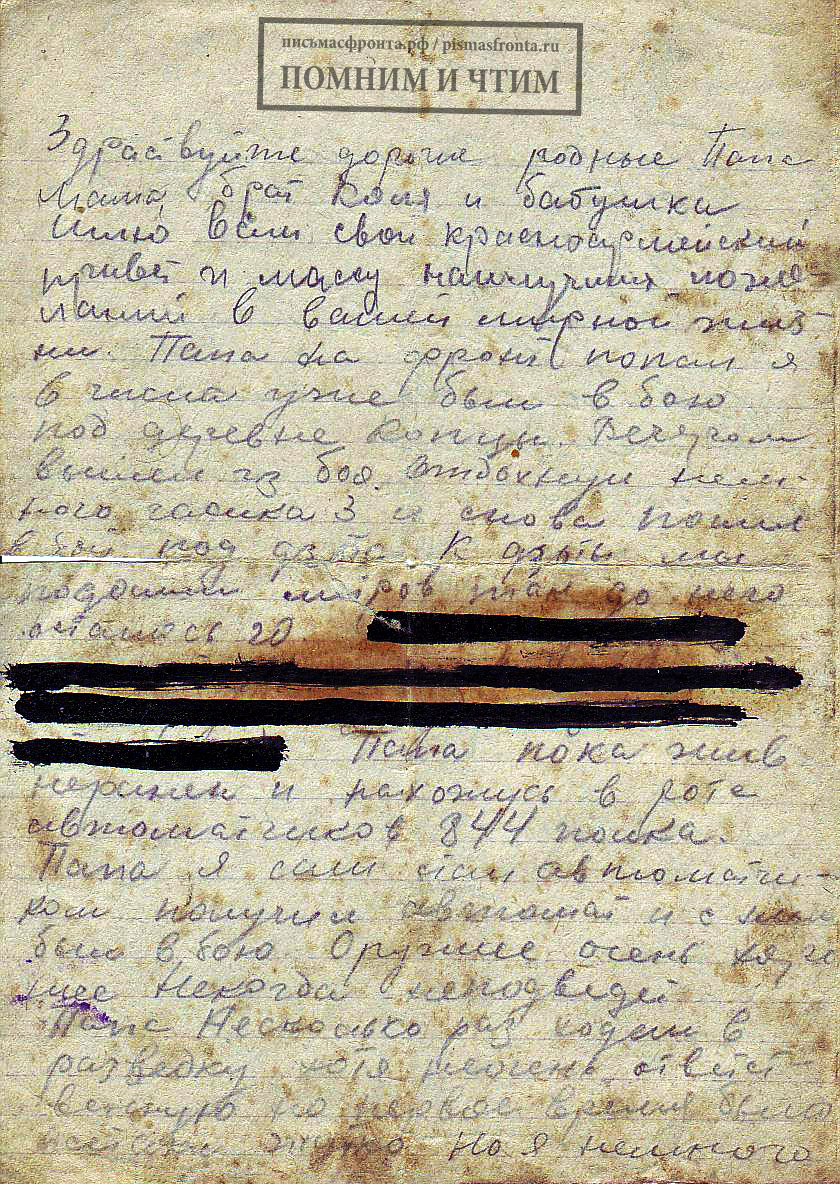 письмасфронта.рф / pismasfronta.ru
ПОМНИМ И ЧТИМ
Здраствуйте дорогие родные Папа
Мама, брат Коля и бабушка
Шлю Вам свой красноармейский
привет и массу наилучших поже-
ланий в вашей мирной жиз
ни. Папа на фронт попал я
в уже был в бою
под деревне Концы. Вечером
вышел из боя. Отдыхнул нем-
ного часика 3 и снова пошли
в бой под дзто К дзоты мы
подошли так до него
осталось 20
Папа пока жив
неранен и нахожусь в роте
автоматчиков 844 полка.
Папа я сам стал автоматчи-
ком получил автомат и с ним
был в бою. Оружие очень хоро
шее Некогда неподведет
Папа Несколько раз ходил в
разведку хотя ответст
венную но первое время было
жутко Но я немного